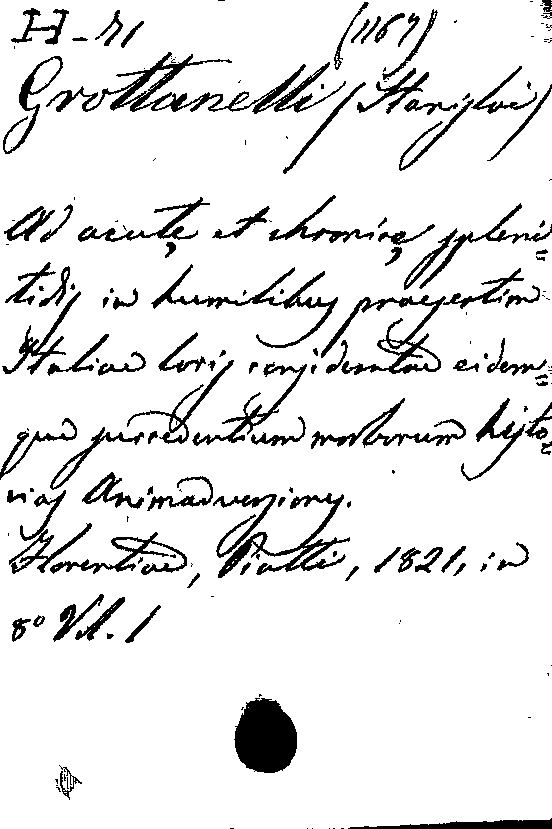 H-71 (1167)
Grottanelli (Stanislai)
Ad acutę et chronicę spleni=
tidis in humilibus praesertim
Italiae locis consideratae eidem=
que succedentium morborum histo=
rias Animadversiones.
Florentiae, Piatti, 1821, in
8º Vol. 1